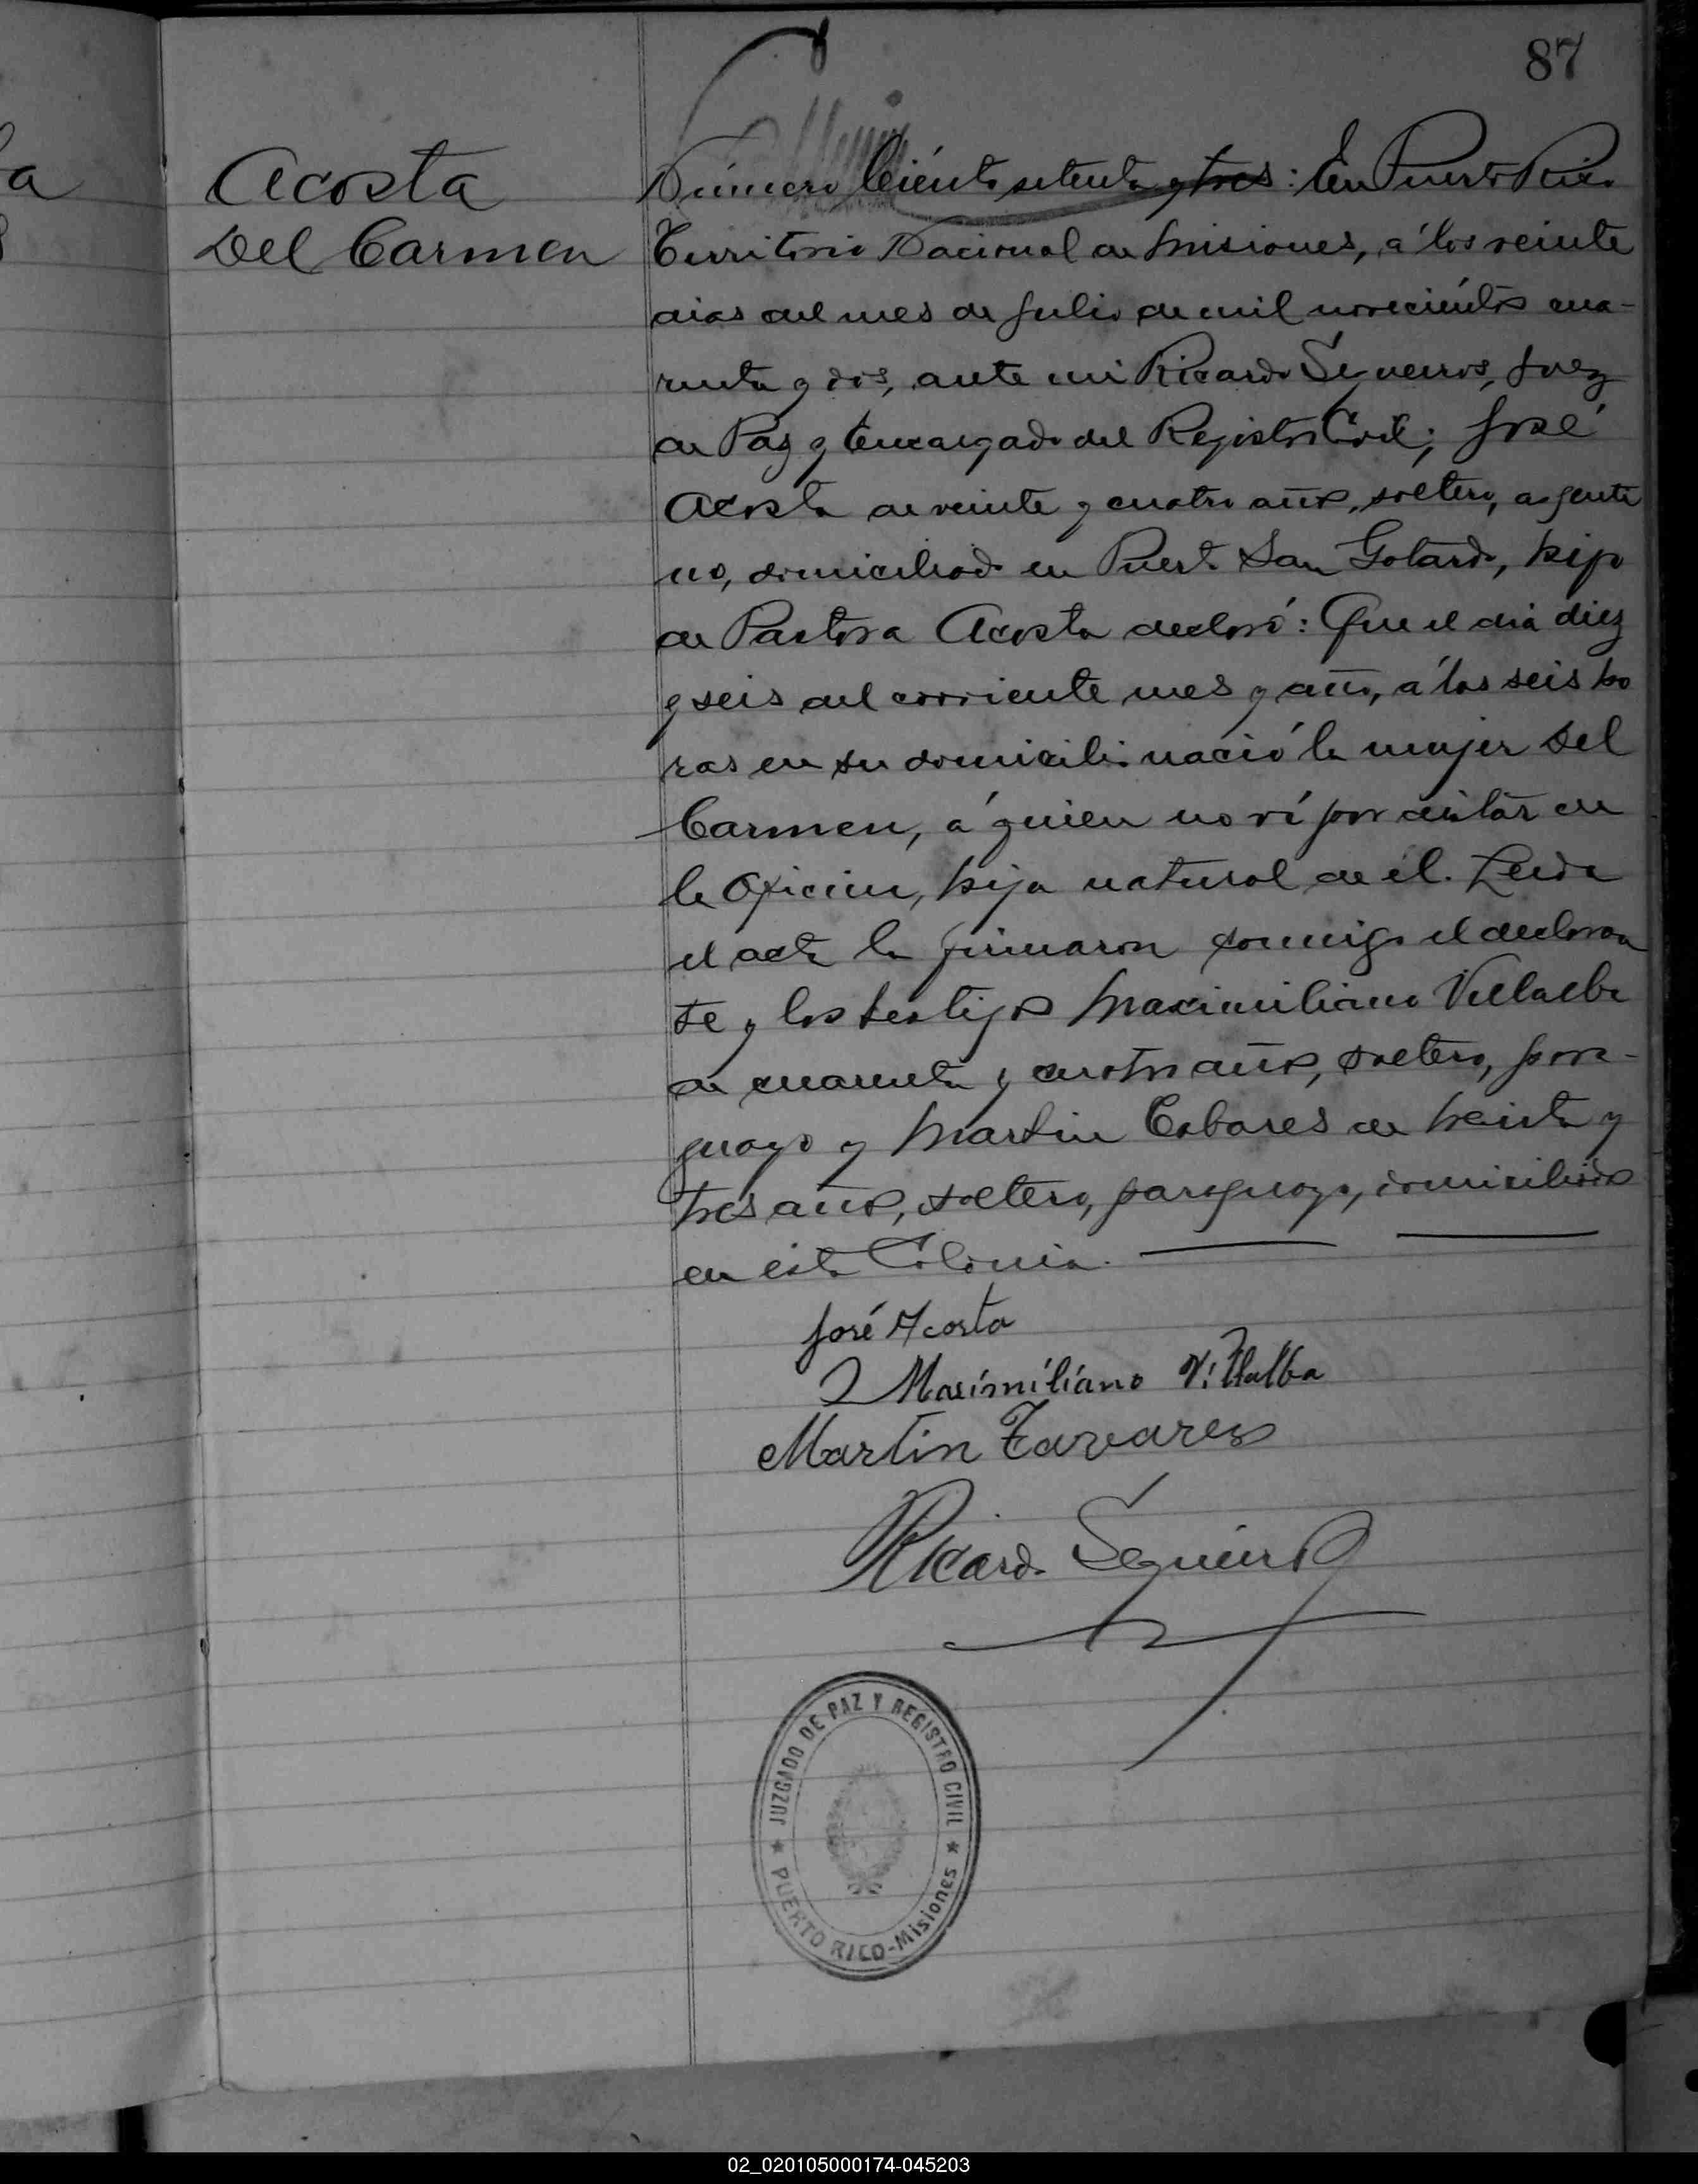 87
Acosta
Del Carmen
Número Ciento setenta y tres: En Puerto Rico
Territorio Nacional de Misiones, á los veinte
dias del mes de Julio de mil novecientos cua-
renta y dos, ante mi Ricardo Sequeiros, Juez
de Paz y Encargado del Registro Civil; José
Acosta de veinte y cuatro años, soltero, argenti
no, domiciliado en Puerto San Gotardo, hijo
de Pastora Acosta declaró: Que el dia diez
y seis del corriente mes y año, á las seis ho
ras en su domicilio nació la mujer Del
Carmen, á quien no ví por distar de
la Oficina, hija natural de él. Leida
el acta la firmaron conmigo el declaran
te y los testigos Maximiliano Villalba
de cuarenta y cuatro años, soltero, para-
guayo y Martin Tabares de treinta y
tres años, soltero, paraguayo, domiciliados
en ésta Colonia.
José Acosta
Maximiliano Villalba
Martin Tavares
Ricardo Sequeiros
JUZGADO DE PAZ Y REGISTRO CIVIL
PUERTO RICO-Misiones
02_020105000174-045203